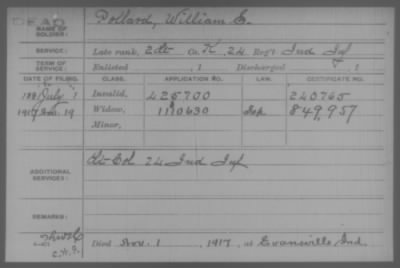 DEAD
NAME OF SOLDIER: Pollard, William E.
SERVICE: Late rank, 2 Lt Co. K, 24 Reg't Ind Inf
TERM OF SERVICE: Enlisted , 1 Discharged , 1
DATE OF FILING. CLASS. APPLICATION NO. LAW. CERTIFICATE NO.
188 July 1 Invalid, 425700 240765
1917 Nov. 19 Widow, 1110630 849,957
Minor,
ADDITIONAL SERVICES: Lt Col 24 Ind Inf
REMARKS:
Died Nov. 1, 1917, at Evansville Ind.